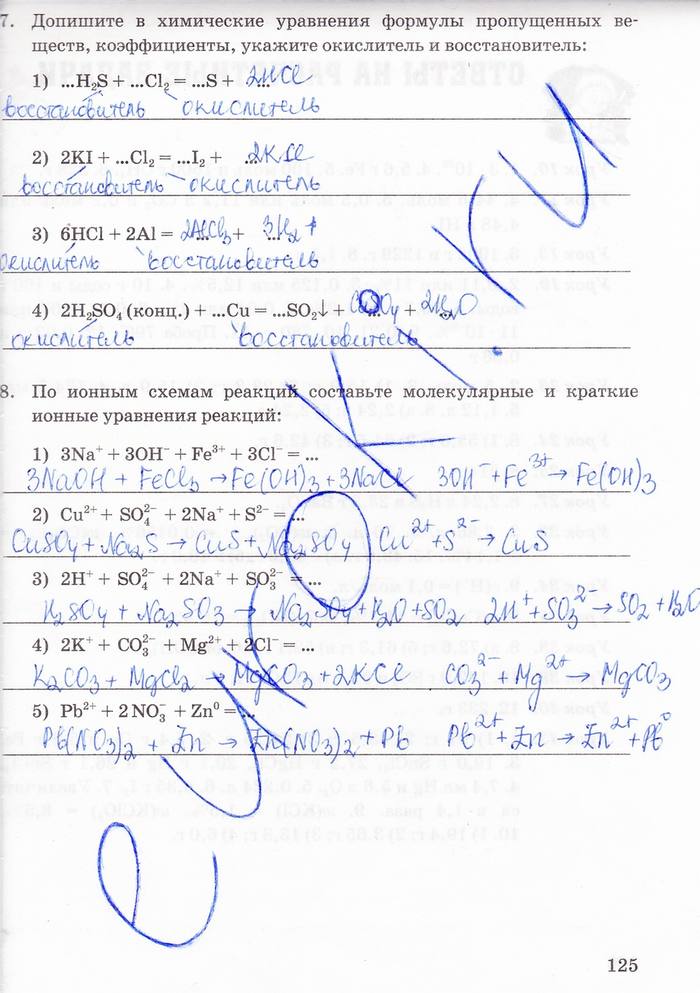 7. Допишите в химические уравнения формулы пропущенных ве-
ществ, коэффициенты, укажите окислитель и восстановитель:
1) ...H₂S + ...Cl₂ = ...S + 2HCl
восстановитель окислитель
2) 2KI + ...Cl₂ = ...I₂ + 2KCl
восстановитель окислитель
3) 6HCl + 2Al = 2AlCl₃ + 3H₂↑
окислитель восстановитель
4) 2H₂SO₄ (конц.) + ...Cu = ...SO₂↓ + CuSO₄ + 2H₂O
окислитель восстановитель
8. По ионным схемам реакций составьте молекулярные и краткие
ионные уравнения реакций:
1) 3Na⁺ + 3OH⁻ + Fe³⁺ + 3Cl⁻ = ...
3NaOH + FeCl₃ → Fe(OH)₃ + 3NaCl 3OH⁻ + Fe³⁺ → Fe(OH)₃
2) Cu²⁺ + SO₄²⁻ + 2Na⁺ + S²⁻ = ...
CuSO₄ + Na₂S → CuS + Na₂SO₄ Cu²⁺ + S²⁻ → CuS
3) 2H⁺ + SO₄²⁻ + 2Na⁺ + SO₃²⁻ = ...
H₂SO₄ + Na₂SO₃ → Na₂SO₄ + H₂O + SO₂ 2H⁺ + SO₃²⁻ → SO₂ + H₂O
4) 2K⁺ + CO₃²⁻ + Mg²⁺ + 2Cl⁻ = ...
K₂CO₃ + MgCl₂ → MgCO₃ + 2KCl CO₃²⁻ + Mg²⁺ → MgCO₃
5) Pb²⁺ + 2NO₃⁻ + Zn⁰ = ...
Pb(NO₃)₂ + Zn → Zn(NO₃)₂ + Pb Pb²⁺ + Zn → Zn²⁺ + Pb⁰
125